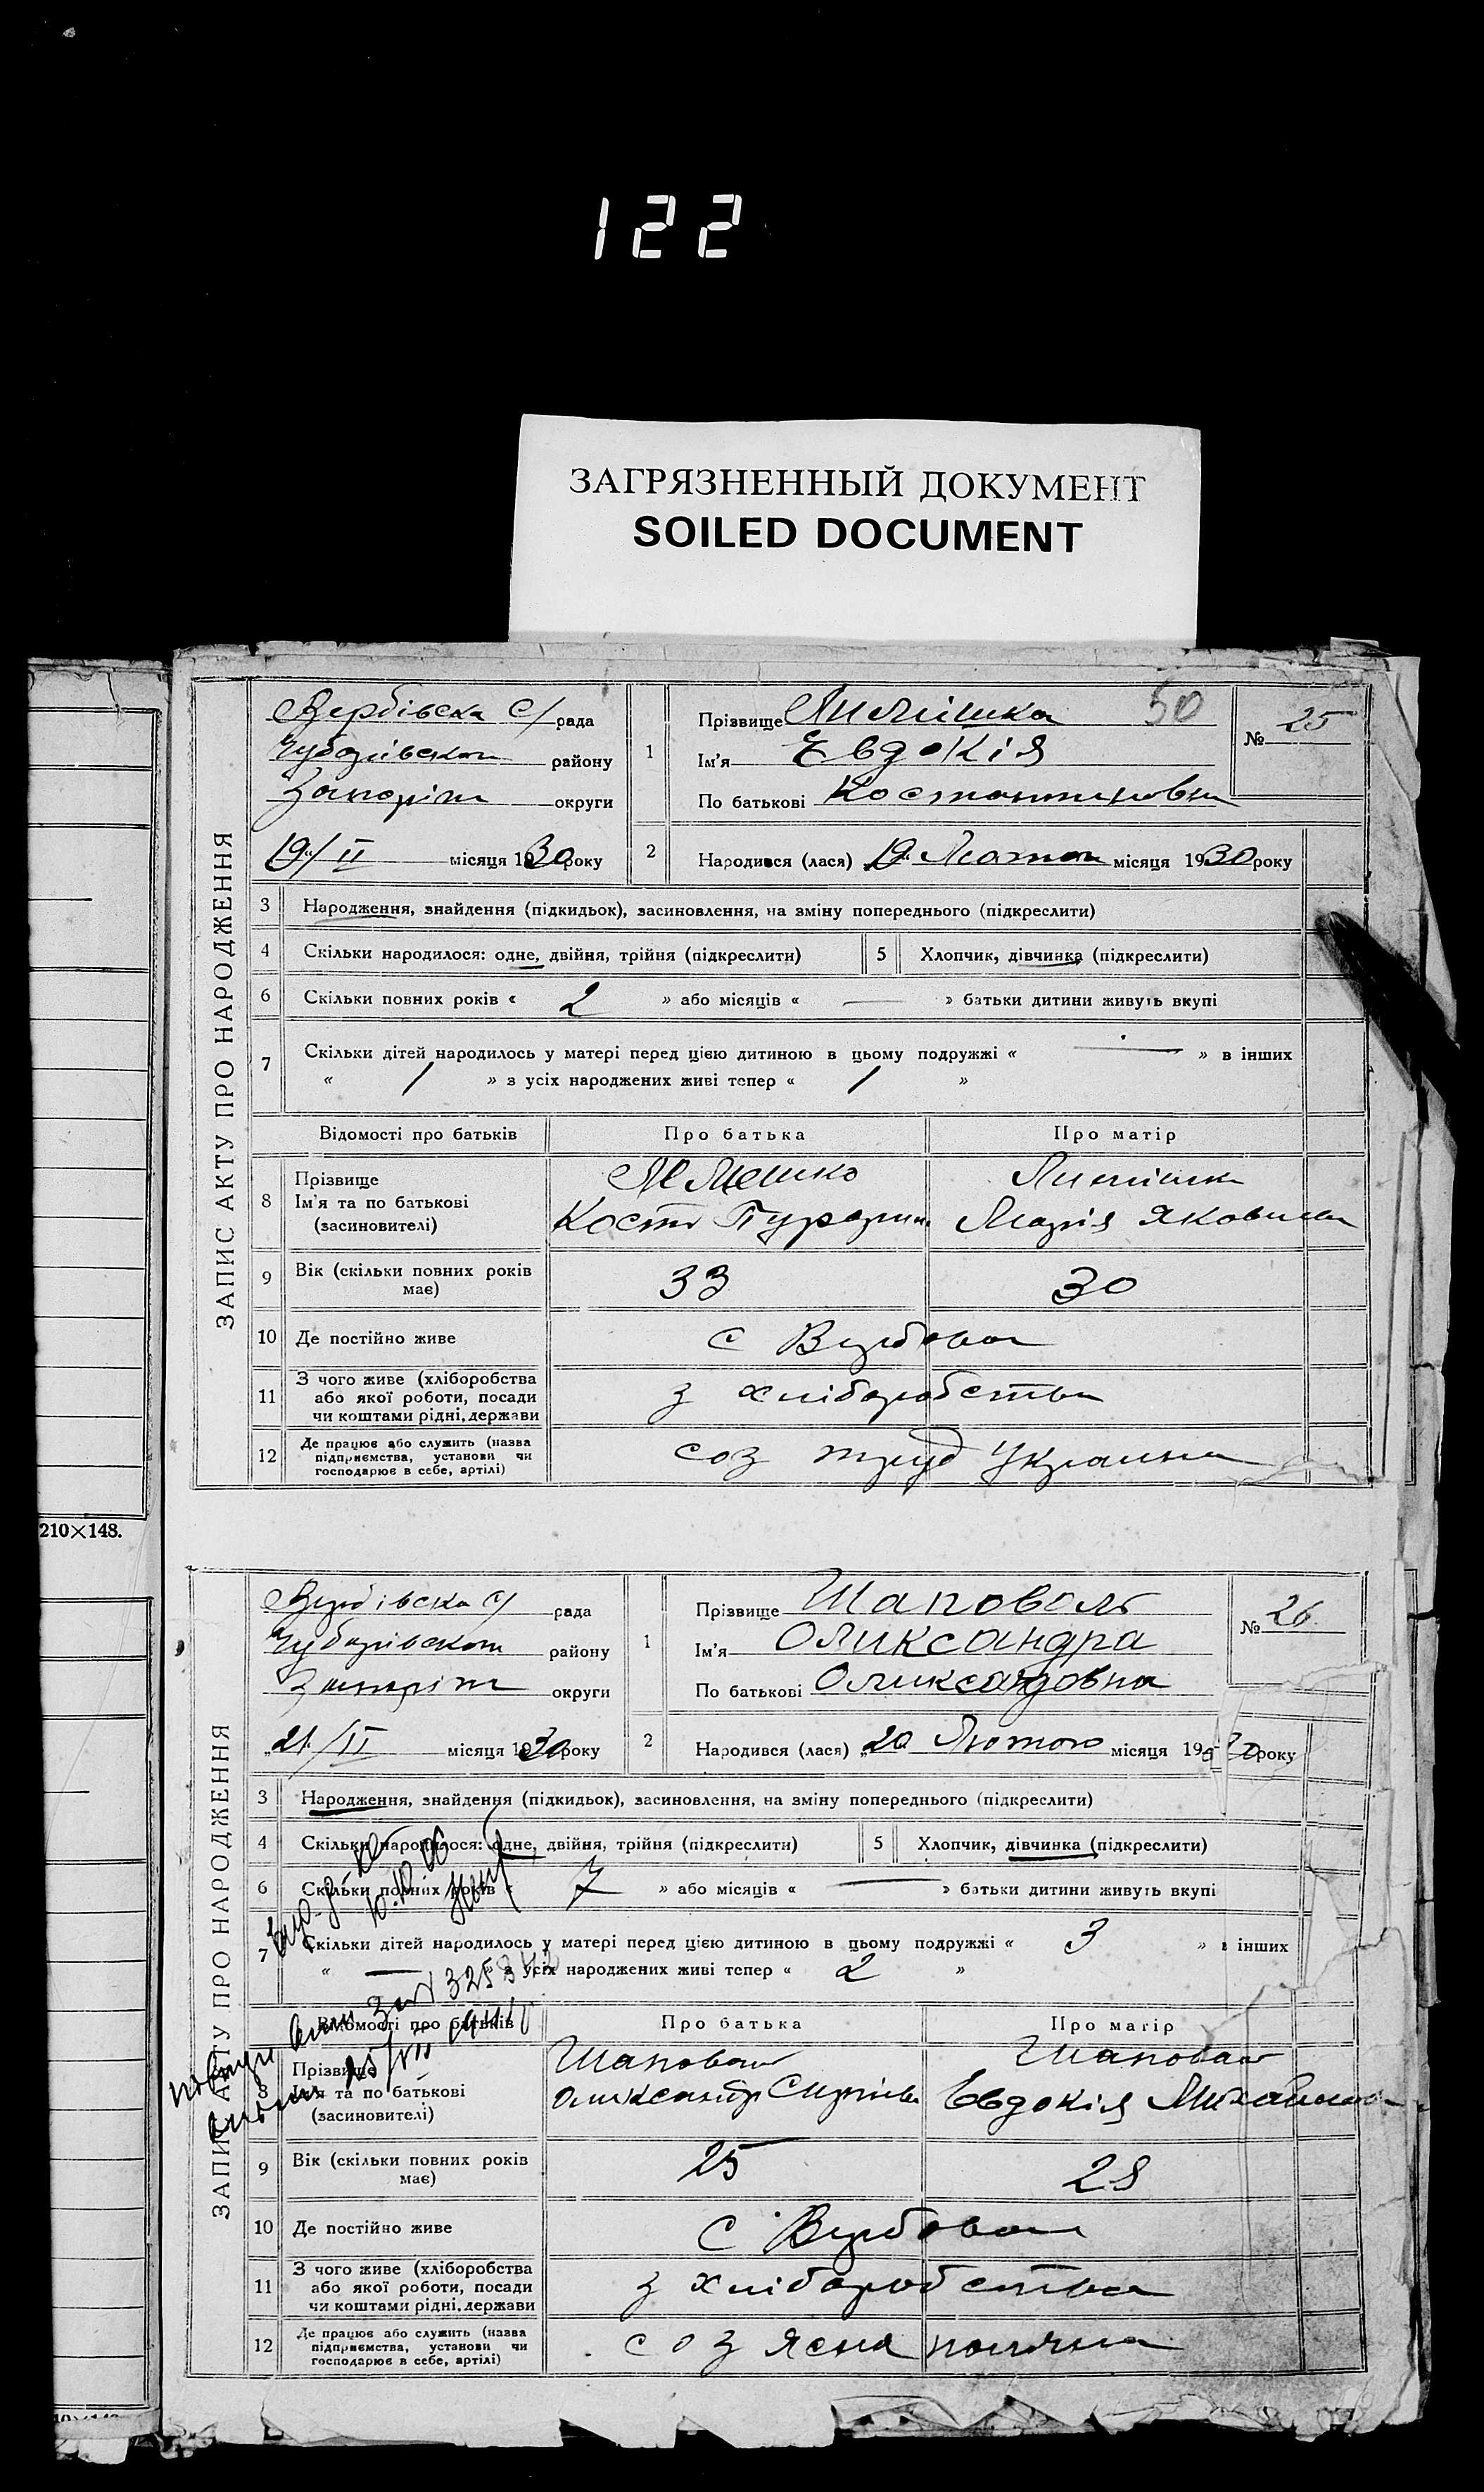 122
ЗАГРЯЗНЕННЫЙ ДОКУМЕНТ
SOILED DOCUMENT
ЗАПИС АКТУ ПРО НАРОДЖЕННЯ
Вербівска С/рада
району
округи
19/II місяця 1930 року
1
Прізвище 50
Ім'я Евдокія
По батькові Костантиновна
№ 25
2
Народився (лася) „19" Лютого місяця 1930 року
3 Народження, знайдення (підкидьок), засиновлення, на зміну попереднього (підкреслити)
4 Скільки народилося: одне, двійня, трійня (підкреслити) 5 Хлопчик, дівчинка (підкреслити)
6 Скільки повних років « 2 » або місяців « — » батьки дитини живуть вкупі
7 Скільки дітей народилось у матері перед цією дитиною в цьому подружжі « — » в інших
« 1 » з усіх народжених живі тепер « 1 »
Відомості про батьків Про батька Про матір
8 Прізвище
Ім'я та по батькові Кость Марія Яковлевна
(засиновителі)
9 Вік (скільки повних років має) 33 30
10 Де постійно живе с Вербова
11 З чого живе (хліборобства або якої роботи, посади чи коштами рідні, держави з хліборобства
12 Де працює або служить (назва підприємства, установи чи господарює в себе, артілі) соз труд Украина
210×148.
ЗАПИС АКТУ ПРО НАРОДЖЕННЯ
Вербівска С/рада
Чубарівского району
округи
„21"/II місяця 1930 року
1
Прізвище Шаповаль
Ім'я Оликсандра
По батькові Оликсандовна
№ 26.
2
Народився (лася) „20 Лютого місяця 1930 року
3 Народження, знайдення (підкидьок), засиновлення, на зміну попереднього (підкреслити)
4 Скільки народилося: одне, двійня, трійня (підкреслити) 5 Хлопчик, дівчинка (підкреслити)
6 Скільки повних років « 7 » або місяців « — » батьки дитини живуть вкупі
7 Скільки дітей народилось у матері перед цією дитиною в цьому подружжі « 3 » в інших
« — » з усіх народжених живі тепер « 2 »
Відомості про батьків Про батька Про матір
8 Прізвище Шаповал Шаповал
Ім'я та по батькові Олександр Евдокія Михайловна
(засиновителі)
9 Вік (скільки повних років має) 25 28
10 Де постійно живе с Вербова
11 З чого живе (хліборобства або якої роботи, посади чи коштами рідні, держави з хліборобства
12 Де працює або служить (назва підприємства, установи чи господарює в себе, артілі) соз Ясна поляна